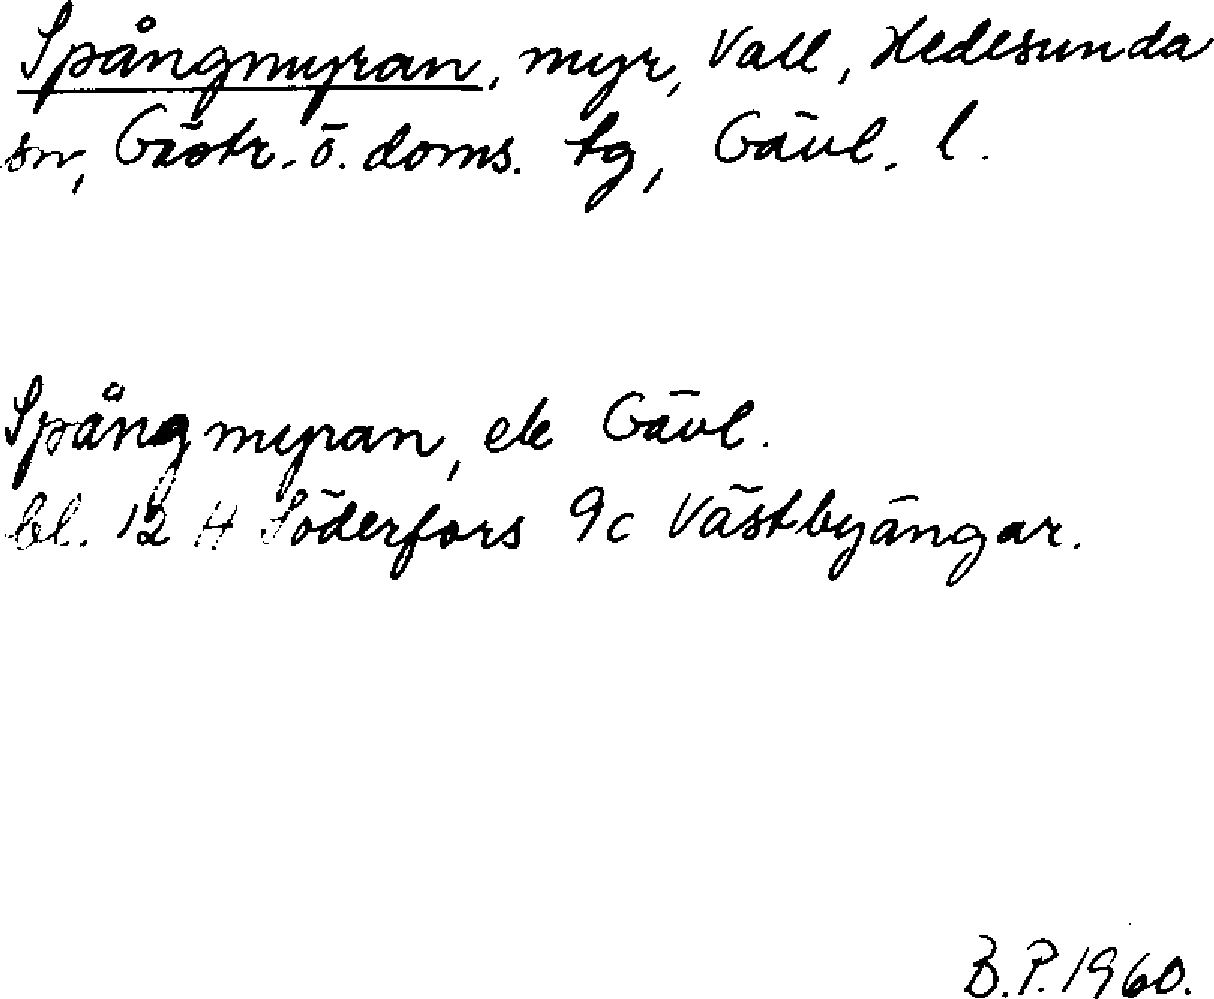 Spångmyran, myr, Vall, Hedesunda
sn, Gästr. ö. doms. tg, Gävl. l.
Spångmyran, ek Gävl.
bl. 12 H Söderfors 9c Västbyängar.
B.P. 1960.